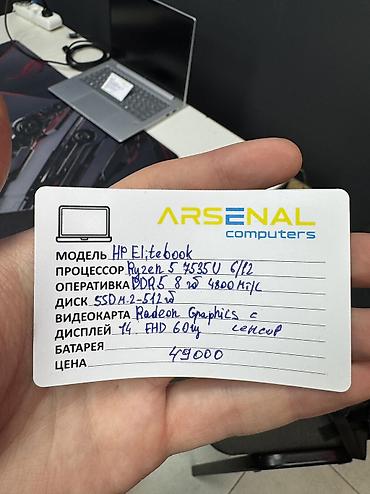 ARSENAL
computers
МОДЕЛЬ HP Elitebook
ПРОЦЕССОР Ryzen 5 7535U 6/12
ОПЕРАТИВКА DDR5 8 гб 4800 Mt/c
ДИСК SSD м.2-512гб
ВИДЕОКАРТА Radeon Graphics c
ДИСПЛЕЙ 14 FHD 60гц сенсор
БАТАРЕЯ
ЦЕНА 49000